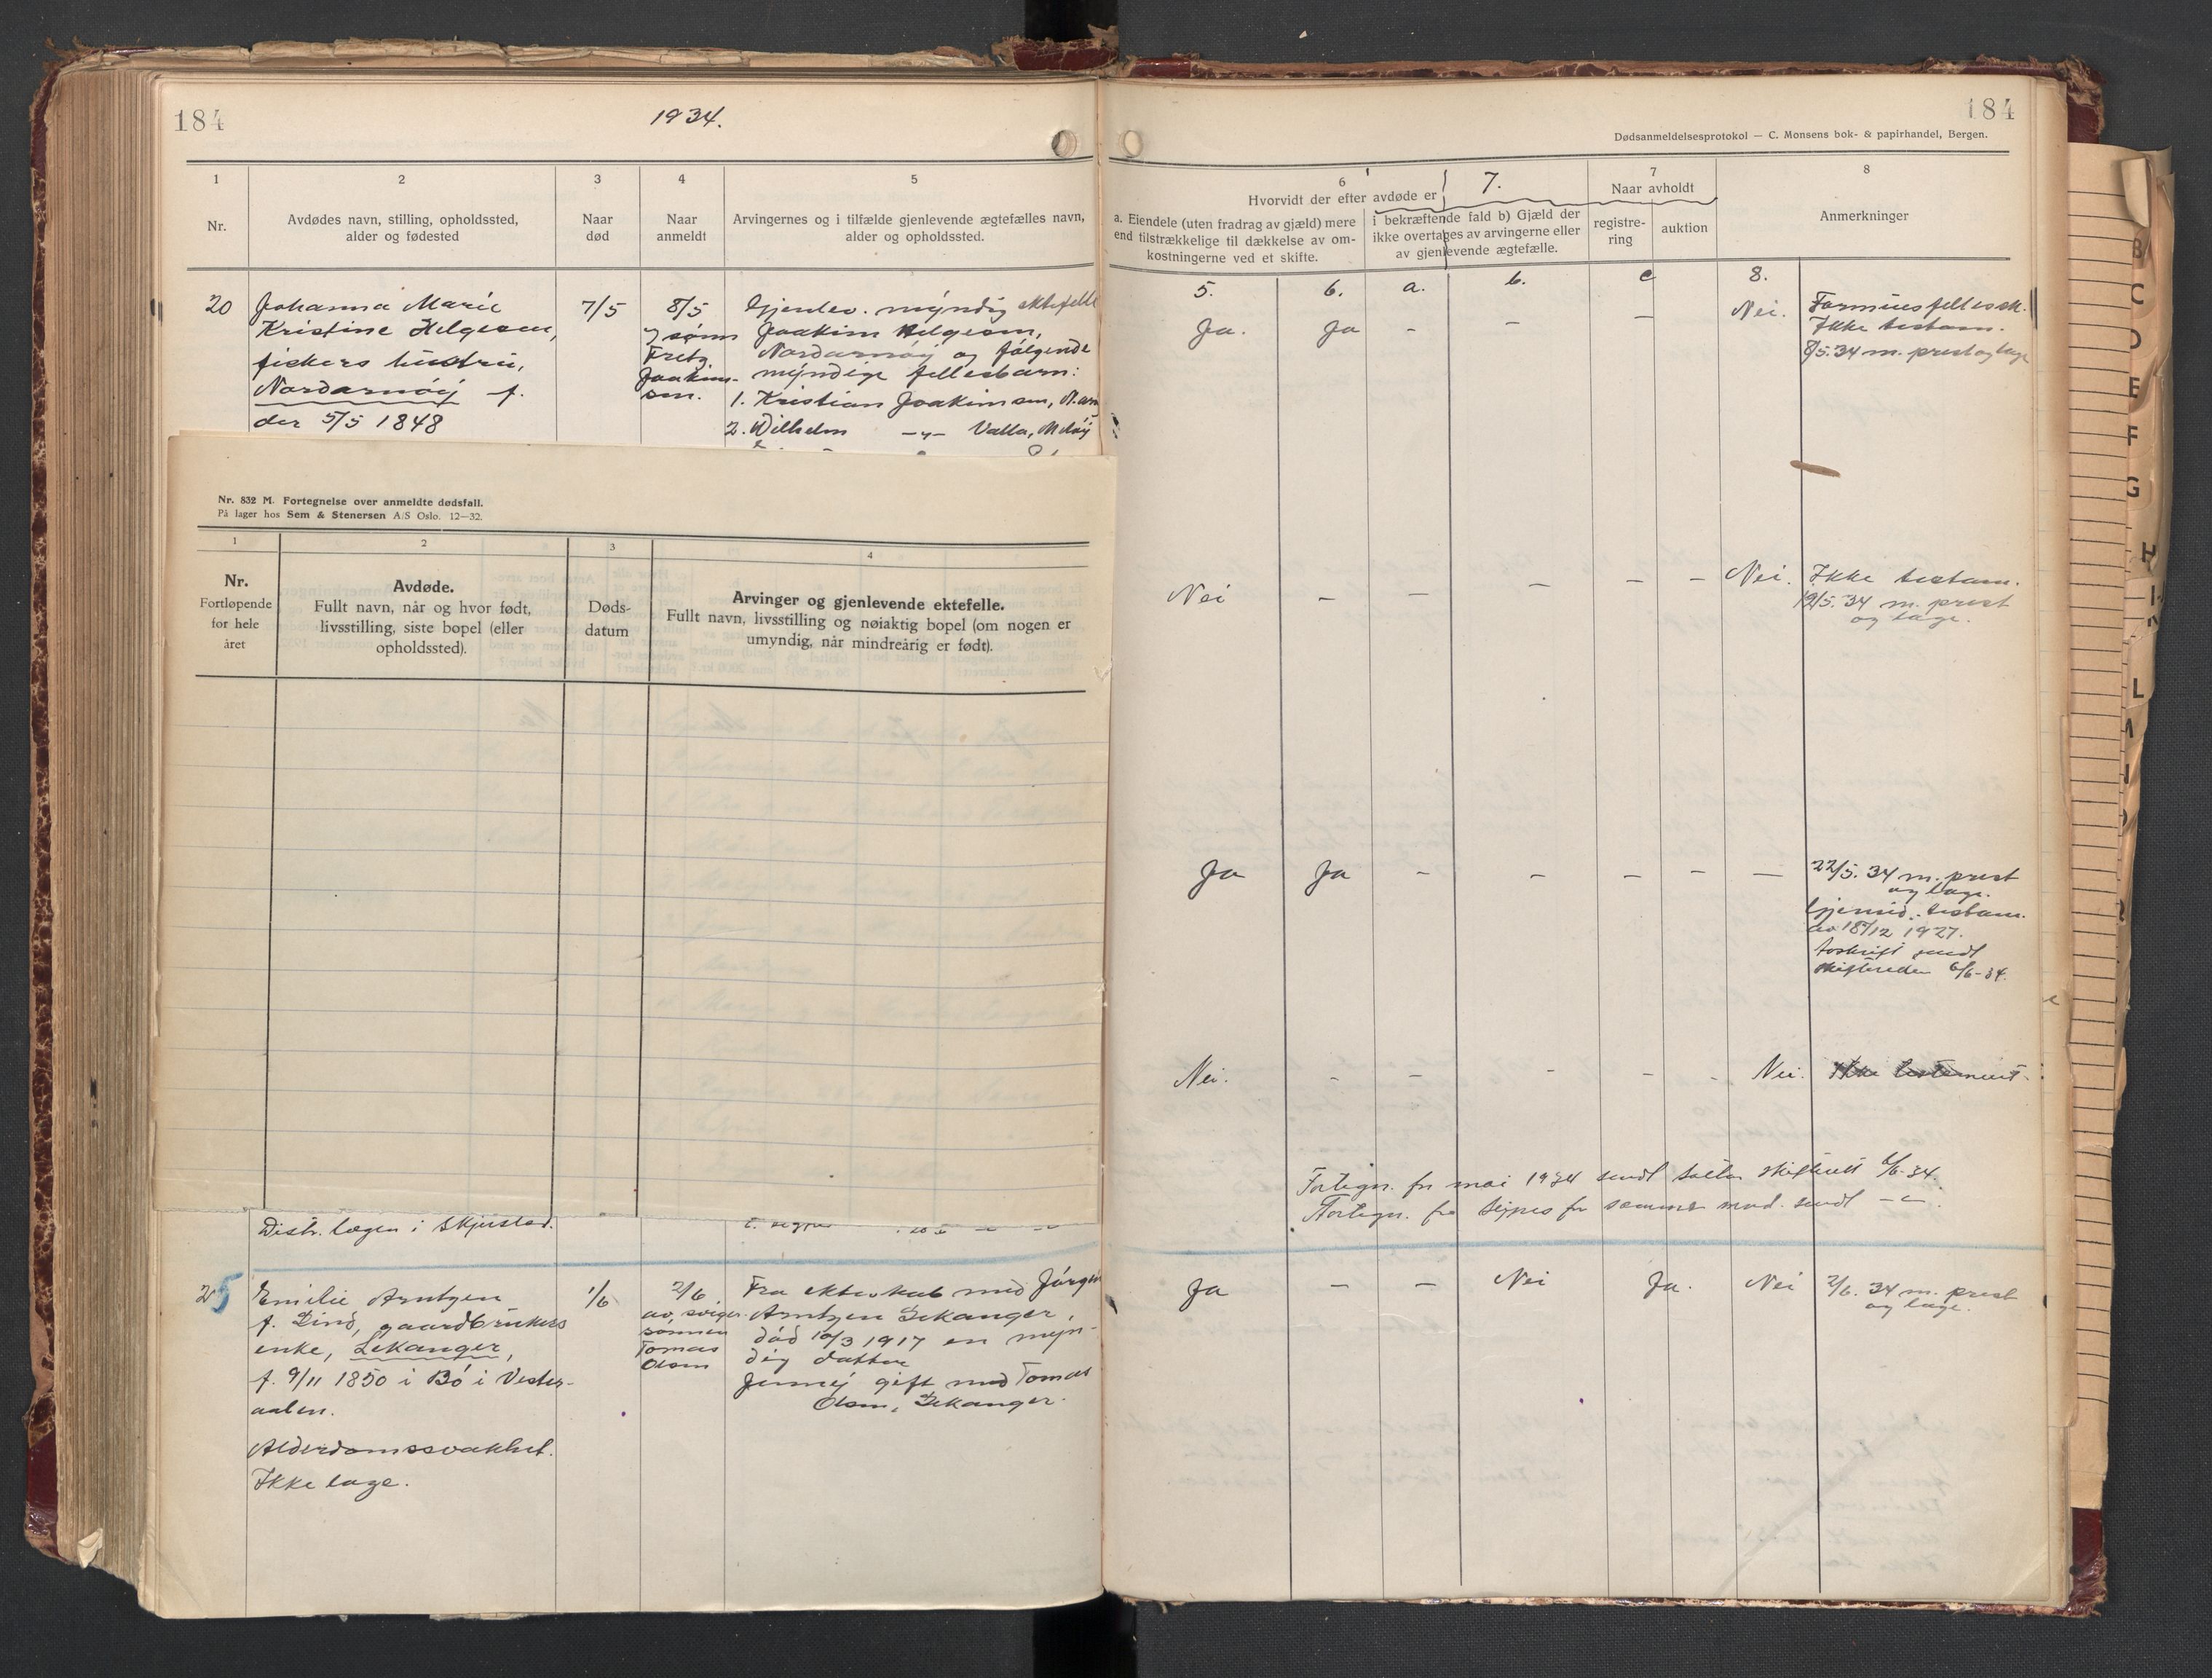 184
1934.
1
2
3
4
5
Nr.
Avdødes navn, stilling, opholdssted,
alder og fødested
Naar
død
Naar
anmeldt
Arvingernes og i tilfælde gjenlevende ægtefælles navn,
alder og opholdssted.
20
Johanna Marie
Kristine Helgesen,
fiskers hustru,
Nordarnøy f.
der 5/5 1848
7/5
8/5
sønn
Fretz
Joakim-
sen.
Gjenlev. myndig ektefelle
Joakim Helgesen,
Nordarnøy og følgende
myndige fellesbarn:
1. Kristian Joakimsen, N.arn
2. Wilhelm -"- Valla, Meløy
Nr. 832 M. Fortegnelse over anmeldte dødsfall.
På lager hos Sem & Stenersen A/S Oslo. 12—32.
1
2
3
4
Nr.
Fortløpende
for hele
året
Avdøde.
Fullt navn, når og hvor født,
livsstilling, siste bopel (eller
opholdssted).
Døds-
datum
Arvinger og gjenlevende ektefelle.
Fullt navn, livsstilling og nøiaktig bopel (om nogen er
umyndig, når mindreårig er født).
Distr. lægen i Skjerstad.
25
Emilie Arntzen
f. Lind, gaardbrukers
enke, Lekanger,
f. 9/11 1850 i Bø i Vester-
aalen.
Alderdomssvakhet.
Ikke læge.
1/6
2/6
av sviger-
sønnen
Tomas
Olsen
Fra ekteskab med Jørgen
Arntzen Lekanger,
død 10/3 1917 en myn-
dig datter
Jenney gift med Tomas
Olsen, Lekanger.
184
Dødsanmeldelsesprotokol — C. Monsens bok- & papirhandel, Bergen.
6
7.
7
8
Hvorvidt der efter avdøde er
Naar avholdt
a. Eiendele (uten fradrag av gjæld) mere
end tilstrækkelige til dækkelse av om-
kostningerne ved et skifte.
i bekræftende fald b) Gjæld der
ikke overtages av arvingerne eller
av gjenlevende ægtefælle.
registre-
ring
auktion
Anmerkninger
5.
6.
a.
b.
c
8.
Ja.
Ja
-
-
-
Nei.
Formuesfellessk.
Ikke testam.
8/5.34 m. prest og læge
Nei
-
-
-
-
-
Nei.
Ikke testam.
19/5.34 m. prest
og læge.
Ja
Ja
-
-
-
-
-
22/5.34 m. prest
og læge.
Gjensid. testam.
av 18/12 1927.
Avskrift sendt
skifteretten 6/6-34.
Nei.
-
-
-
-
-
Nei.
Ikke testament.
Fortegn. for mai 1934 sendt Salten skifterett 6/6-34.
Fortegn. fra for samme mnd. sendt -"-
Ja
-
-
Nei
Ja.
Nei
2/6.34 m. prest
og læge.
B
C
D
E
F
G
H
L